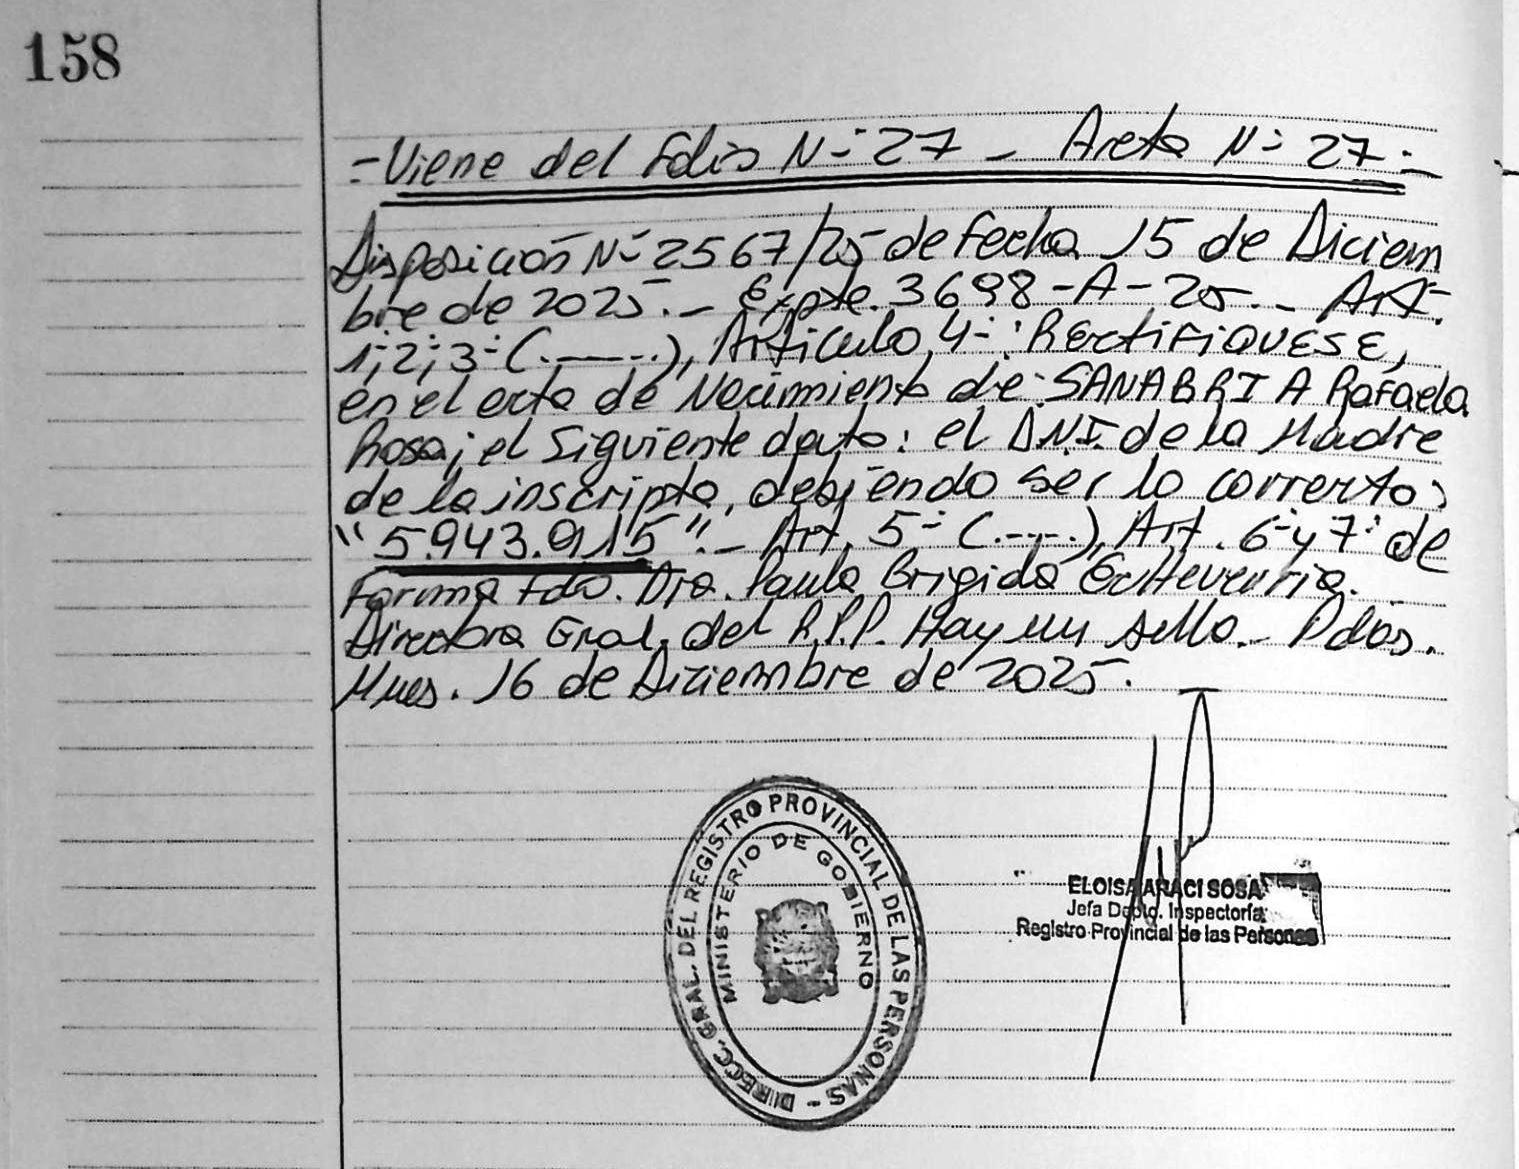 158
-Viene del Folio Nº 27 - Acta Nº 27.-
Disposición Nº 2567/25 de fecha 15 de Diciem
bre de 2025.- Expte. 3698-A-25.- Art.
1º,2º,3º (.----.), Artículo 4º: RECTIFIQUESE,
en el acta de Nacimiento de SANABRIA Rafaela
Rosa; el siguiente dato: el D.N.I. de la Madre
de la inscripta, debiendo ser lo correcto:
"5.943.915".- Art. 5º (.----.), Art. 6º y 7º de
Forma Fdo. Dra. Paula Brigida Echeverria.
Directora Gral. del R.P.P. Hay un sello.- Pdas.
Mnes. 16 de Diciembre de 2025.
DIRECC. GRAL. DEL REGISTRO PROVINCIAL DE LAS PERSONAS -
MINISTERIO DE GOBIERNO
ELOISA ARACI SOSA
Jefa Depto. Inspectoría
Registro Provincial de las Personas